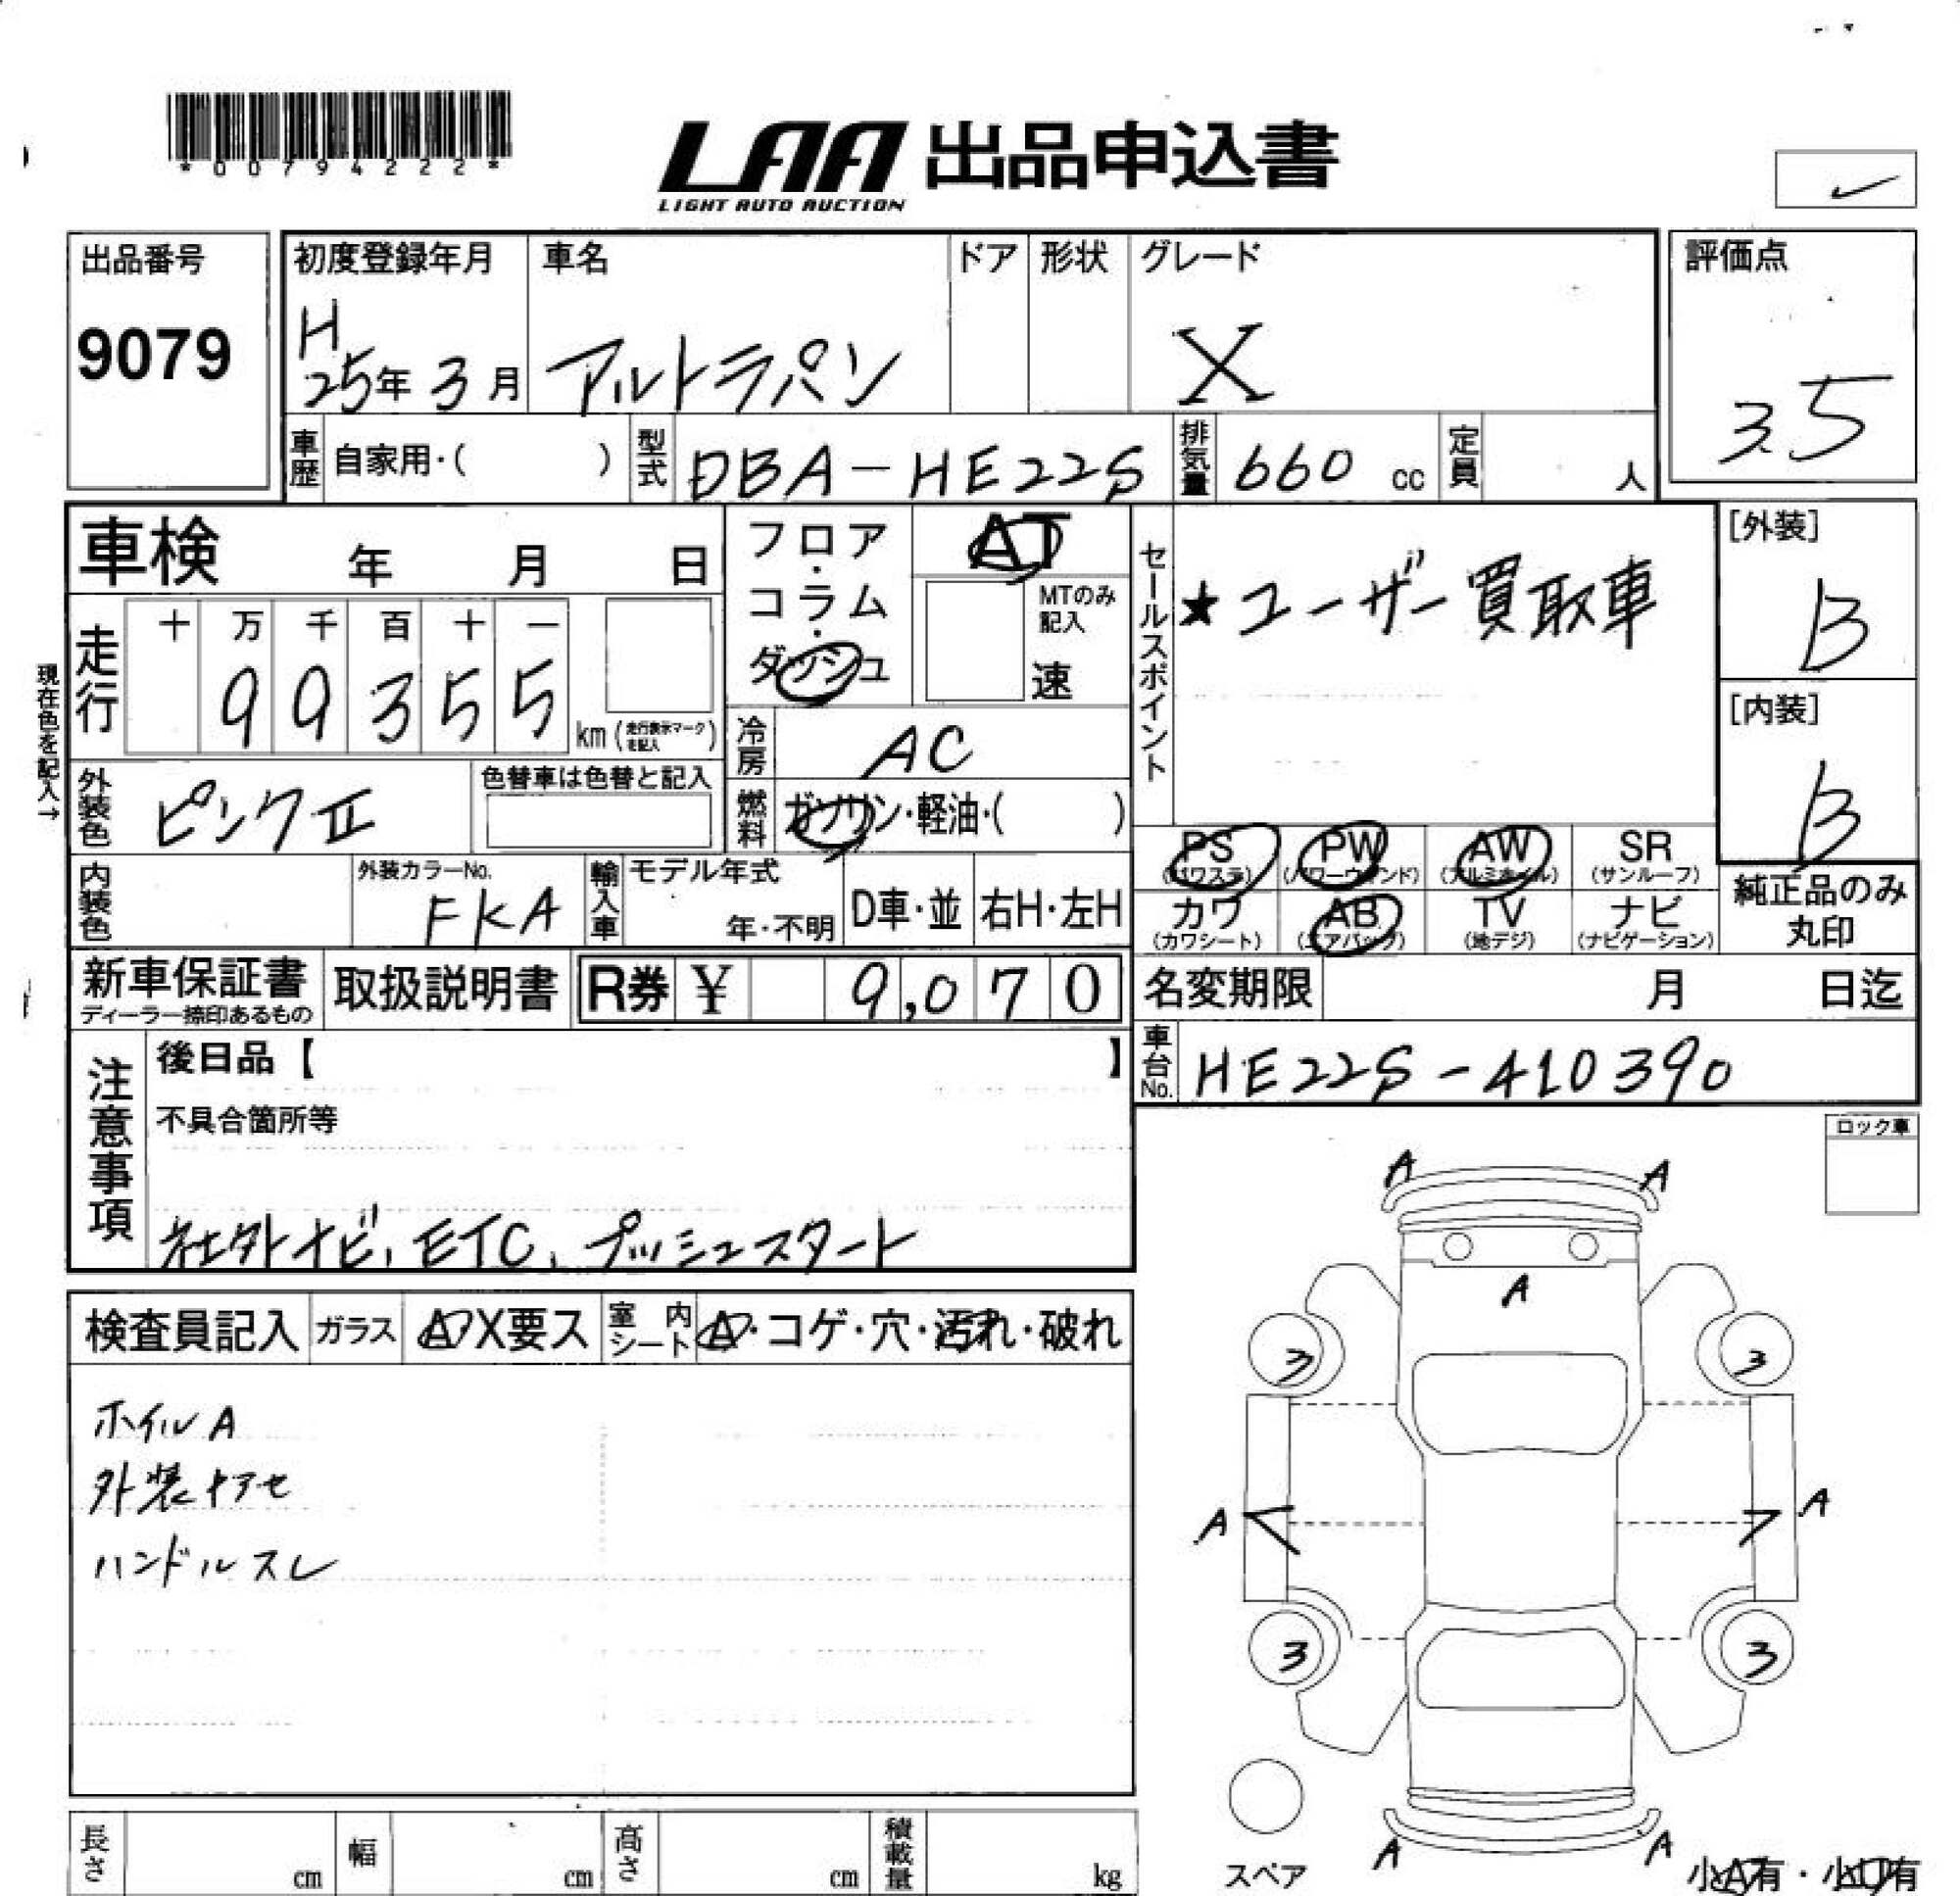 *00794222*
LAA 出品申込書
LIGHT AUTO AUCTION
出品番号
9079
初度登録年月
H
25年 3月
車名
アルトラパン
ドア
形状
グレード
X
評価点
3.5
車歴
自家用・( )
型式
DBA-HE22S
排気量
660 cc
定員
人
車検 年 月 日
フロア・コラム・ダッシュ
AT
MTのみ記入
速
セールスポイント
★ユーザー買取車
[外装]
B
[内装]
B
現在色を記入→
走行
十 万 千 百 十 一
99355
km (走行表示マークを記入)
冷房
AC
外装色
ピンクⅡ
色替車は色替と記入
燃料
ガソリン・軽油・( )
PS (パワステ)
PW (パワーウインド)
AW (アルミホイル)
SR (サンルーフ)
カワ (カワシート)
AB (エアバッグ)
TV (地デジ)
ナビ (ナビゲーション)
純正品のみ丸印
内装色
外装カラーNo.
FKA
輸入車
モデル年式
年・不明
D車・並
右H・左H
新車保証書
ディーラー捺印あるもの
取扱説明書
R券 ¥ 9,070
名変期限 月 日迄
車台No.
HE22S-410390
注意事項
後日品【 】
不具合箇所等
社外ナビ, ETC, プッシュスタート
ロック車
検査員記入
ガラス
A X要ス
室内シート
A・コゲ・穴・汚れ・破れ
ホイルA
外装キアセ
ハンドルスレ
A A
A
3 3
A A
3 3
A A
スペア
小A有・小U有
長さ cm
幅 cm
高さ cm
積載量 kg